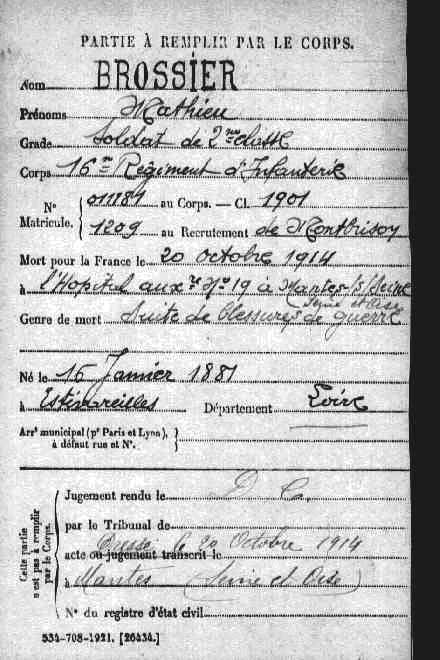 PARTIE À REMPLIR PAR LE CORPS.
Nom BROSSIER
Prénoms Mathieu
Grade Soldat de 2me classe
Corps 16me Régiment d'Infanterie
N° Matricule. 011184 au Corps. — Cl. 1901
1209 au Recrutement de Montbrison
Mort pour la France le 20 octobre 1914
à l'Hopital auxre No 19 à Mantes s/Seine
Seine et Oise
Genre de mort Suite de blessures de guerre
Né le 16 Janvier 1881
à Estivareilles Département Loire
Arrt municipal (pr Paris et Lyon),
à défaut rue et N°.
Cette partie n'est pas à remplir par le Corps.
Jugement rendu le D C.
par le Tribunal de
le 20 Octobre 1914
acte ou jugement transcrit le
à Mantes (Seine et Oise)
N° du registre d'état civil
534-708-1921. [26434.]